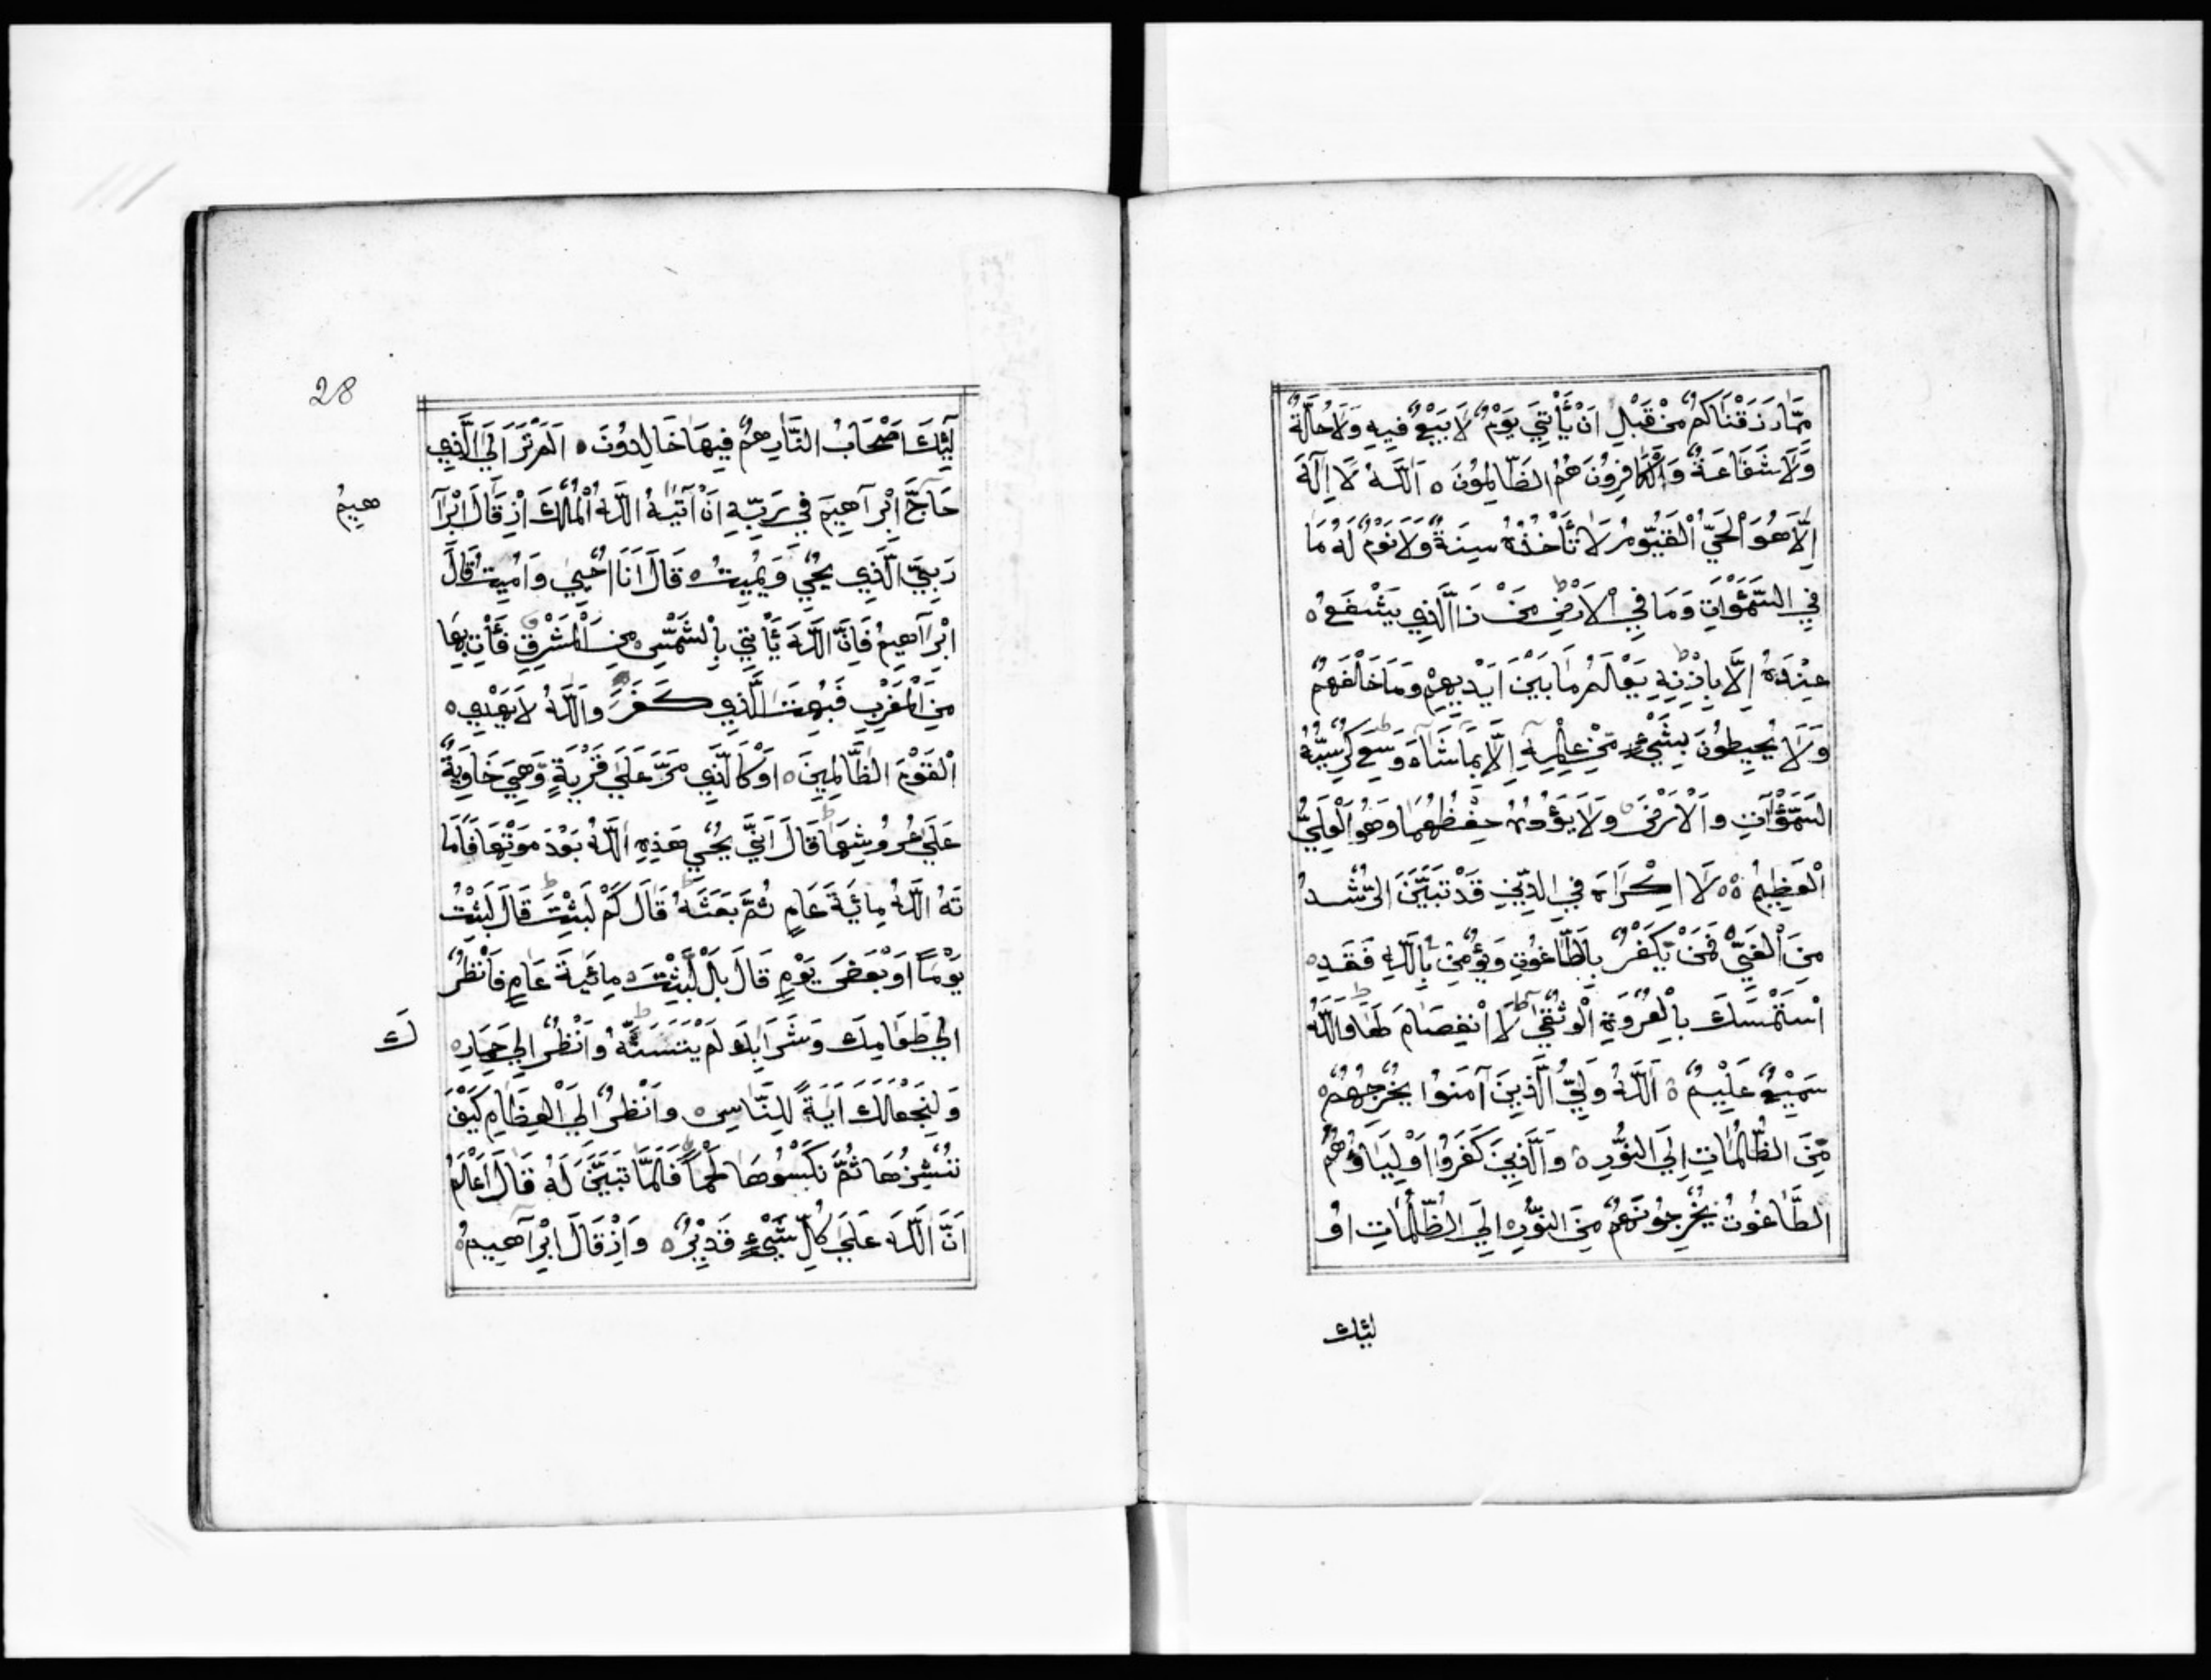 مِمَّا رَزَقْنَاكُمْ مِنْ قَبْلِ اَنْ يَأْتِيَ يَوْمٌ لَا بَيْعٌ فِيهِ وَلَا خُلَّةٌ
وَلَا شَفَاعَةٌ وَالْكَافِرُونَ هُمُ الظَّالِمُونَ ه اَللّٰهُ لَا اِلٰهَ
اِلَّا هُوَ الْحَيُّ الْقَيُّومُ لَا تَأْخُذُهُ سِنَةٌ وَلَا نَوْمٌ لَهُ مَا
فِي السَّمٰوَاتِ وَمَا فِي الْاَرْضِ مَنْ ذَا الَّذِي يَشْفَعُ ه
عِنْدَهُ اِلَّا بِاِذْنِهِ يَعْلَمُ مَا بَيْنَ اَيْدِيهِمْ وَمَا خَلْفَهُمْ
وَلَا يُحِيطُونَ بِشَيْءٍ مِنْ عِلْمِهِ اِلَّا بِمَا شَآءَ وَسِعَ كُرْسِيُّهُ
السَّمٰوَاتِ وَالْاَرْضَ وَلَا يَؤُدُهُ حِفْظُهُمَا وَهُوَ الْعَلِيُّ
الْعَظِيمُ ه ه لَا اِكْرَاهَ فِي الدِّينِ قَدْ تَبَيَّنَ الرُّشْدُ
مِنَ الْغَيِّ فَمَنْ يَكْفُرْ بِالطَّاغُوتِ وَيُؤْمِنْ بِاللّٰهِ فَقَدِ ه
اسْتَمْسَكَ بِالْعُرْوَةِ الْوُثْقٰي لَا انْفِصَامَ لَهَا وَاللّٰهُ
سَمِيعٌ عَلِيمٌ ه اَللّٰهُ وَلِيُّ الَّذِينَ آمَنُوا يُخْرِجُهُمْ ه
مِنَ الظُّلُمَاتِ اِلَي النُّورِ ه وَالَّذِينَ كَفَرُوا اَوْلِيَاؤُهُمُ
الطَّاغُوتُ يُخْرِجُونَهُمْ مِنَ النُّورِ ه اِلَي الظُّلُمَاتِ اوُ
لئِٓكَ
28
لَئِكَ اَصْحَابُ النَّارِ هُمْ فِيهَا خَالِدُونَ ه اَلَمْ تَرَ اِلَي الَّذِي
حَآجَّ اِبْرَآهِيمَ فِي رَبِّهِ اَنْ آتَيٰهُ اللّٰهُ الْمُلْكَ اِذْ قَالَ اِبْرَآ
هِيمُ
رَبِّيَ الَّذِي يُحْيِي وَيُمِيتُ ه قَالَ اَنَا اُحْيِي وَاُمِيتُ قَالَ
اِبْرَآهِيمُ فَاِنَّ اللّٰهَ يَأْتِي بِالشَّمْسِ ه مِنَ الْمَشْرِقِ فَأْتِ بِهَا
مِنَ الْمَغْرِبِ فَبُهِتَ الَّذِي كَفَرَ وَاللّٰهُ لَا يَهْدِي ه
الْقَوْمَ الظَّالِمِينَ ه اَوْ كَالَّذِي مَرَّ عَلٰي قَرْيَةٍ وَهِيَ خَاوِيَةٌ
عَلٰي عُرُوشِهَا قَالَ اَنّٰي يُحْيِي هَذِهِ اللّٰهُ بَعْدَ مَوْتِهَا فَاَمَا
تَهُ اللّٰهُ مِائَةَ عَامٍ ثُمَّ بَعَثَهُ قَالَ كَمْ لَبِثْتَ قَالَ لَبِثْتُ
يَوْمًا اَوْ بَعْضَ يَوْمٍ قَالَ بَلْ لَبِثْتَ ه مِائَةَ عَامٍ فَانْظُرْ
اِلٰي طَعَامِكَ وَشَرَابِكَ لَمْ يَتَسَنَّهْ وَانْظُرْ اِلٰي حِمَارِه
كَ
وَلِنَجْعَلَكَ اٰيَةً لِلنَّاسِ ه وَانْظُرْ اِلَي الْعِظَامِ كَيْفَ
نُنْشِزُهَا ثُمَّ نَكْسُوهَا لَحْمًا فَلَمَّا تَبَيَّنَ لَهُ قَالَ اَعْلَمُ
اَنَّ اللّٰهَ عَلٰي كُلِّ شَيْءٍ قَدِيرٌ ه وَاِذْ قَالَ اِبْرَآهِيمُ ه